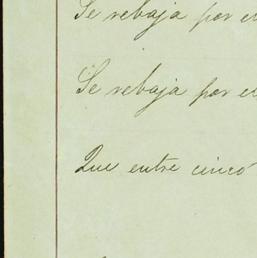 Se rebaja por el
Se rebaja por el
Que entre cinco